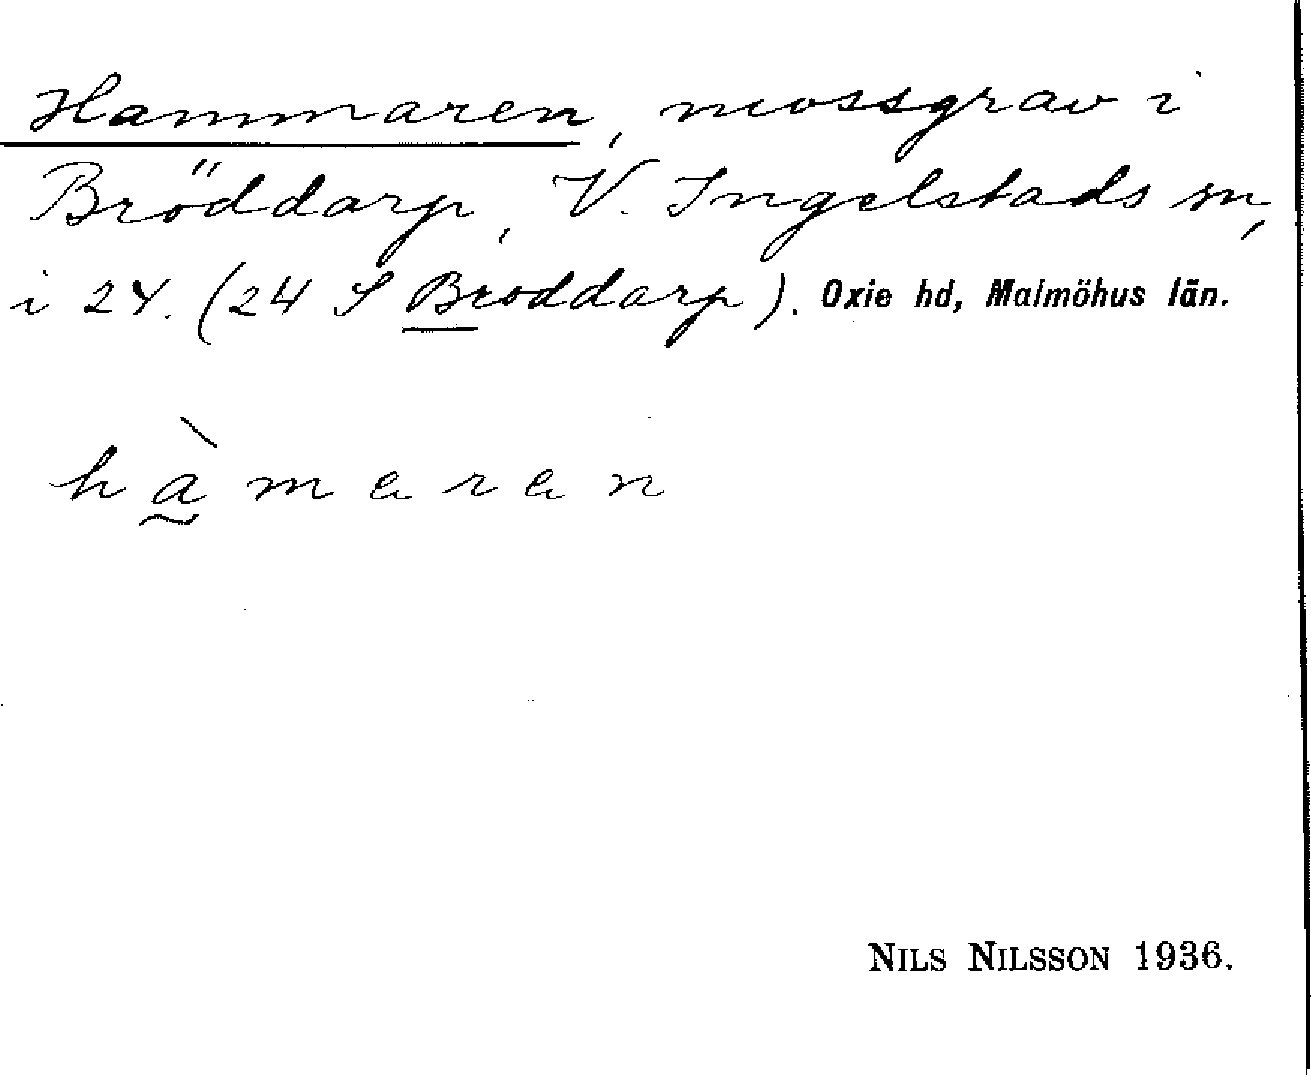 Hammaren, mossgrav i
Bröddarp, V. Ingelstads sn,
i 24. (24 S Broddarp). Oxie hd, Malmöhus län.
hàmaran
NILS NILSSON 1936.